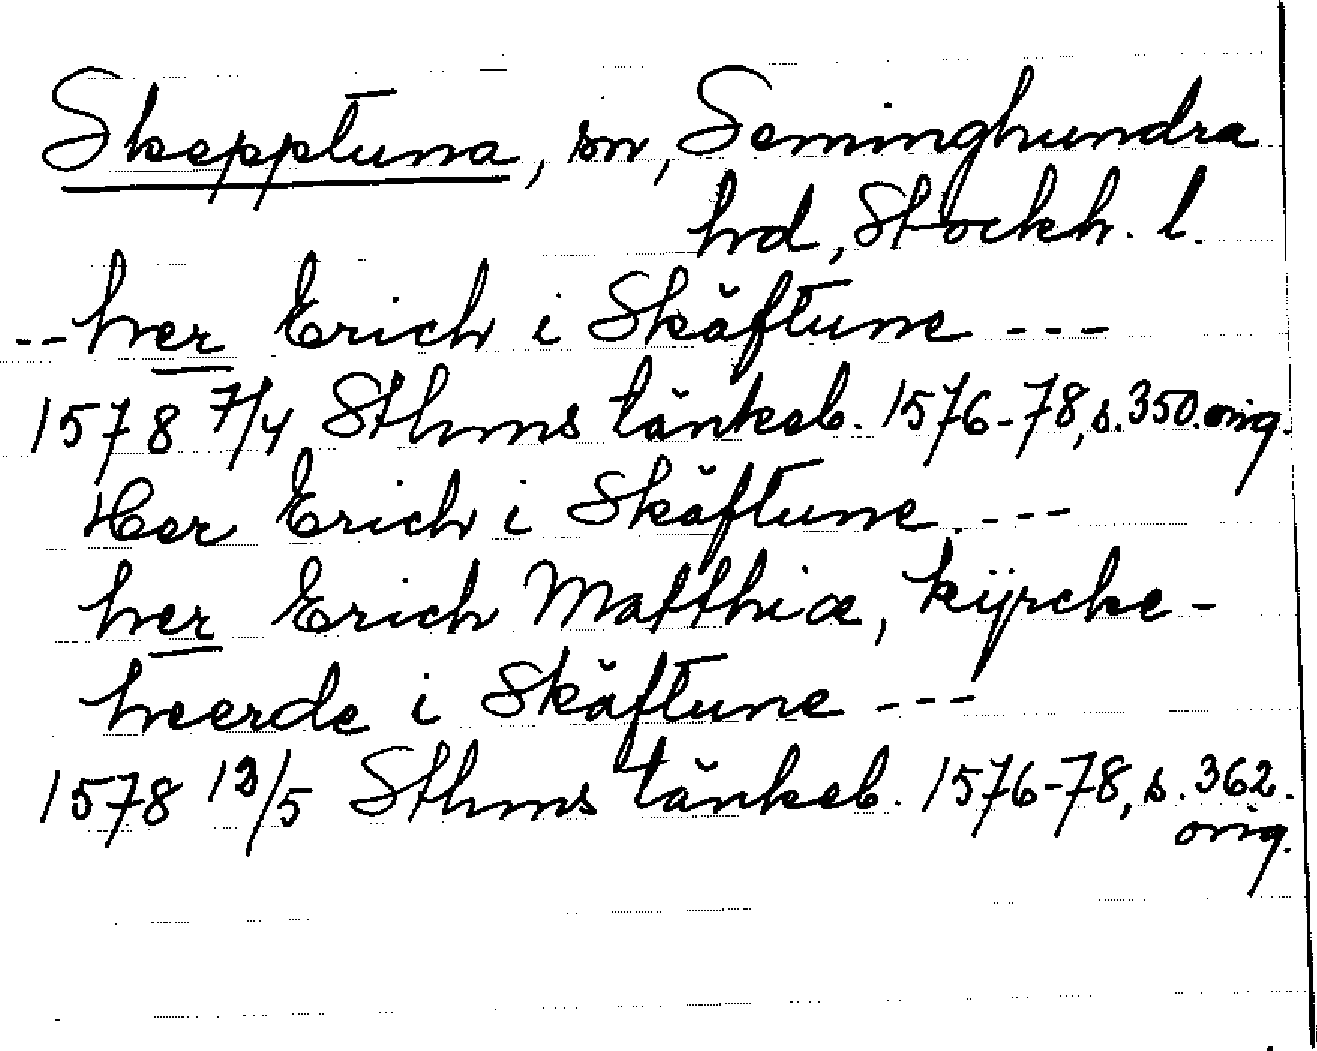 Skepptuna, sn, Seminghundra
hd, Stockh. l.
--her Erich i Skăftune ---
1578 7/4 Sthms tänkeb. 1576-78, s. 350. orig.
Her Erich i Skăftune ---
her Erich Matthiæ, kÿrcke-
heerde i Skăftune ---
1578 13/5 Sthms tänkeb. 1576-78, s. 362.
orig.